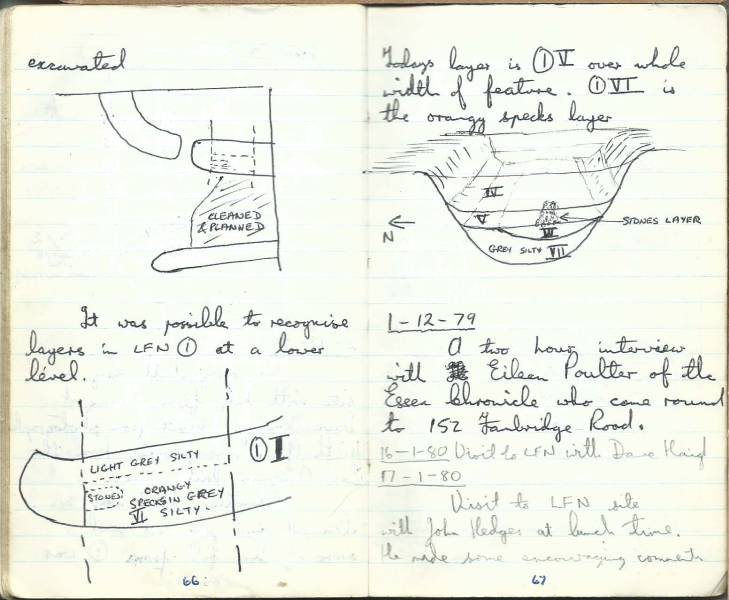 excavated
CLEANED
& PLANNED
It was possible to recognise
layers in LFN ① at a lower
level.
① I
LIGHT GREY SILTY
STONES
ORANGY
SPECKS IN GREY
VI SILTY.
66
Todays layer is ① V over whole
width of feature. ① VI is
the orangy specks layer
IV
V
STONES LAYER
VI
N
GREY SILTY VII
1-12-79
A two hour interview
with Eileen Poulter of the
Essex Chronicle who came round
to 152 Fambridge Road.
16-1-80 Visit to LFN with Dave
17-1-80
Visit to LFN site
with John Hedges at lunch time.
He made some encouraging comments
67